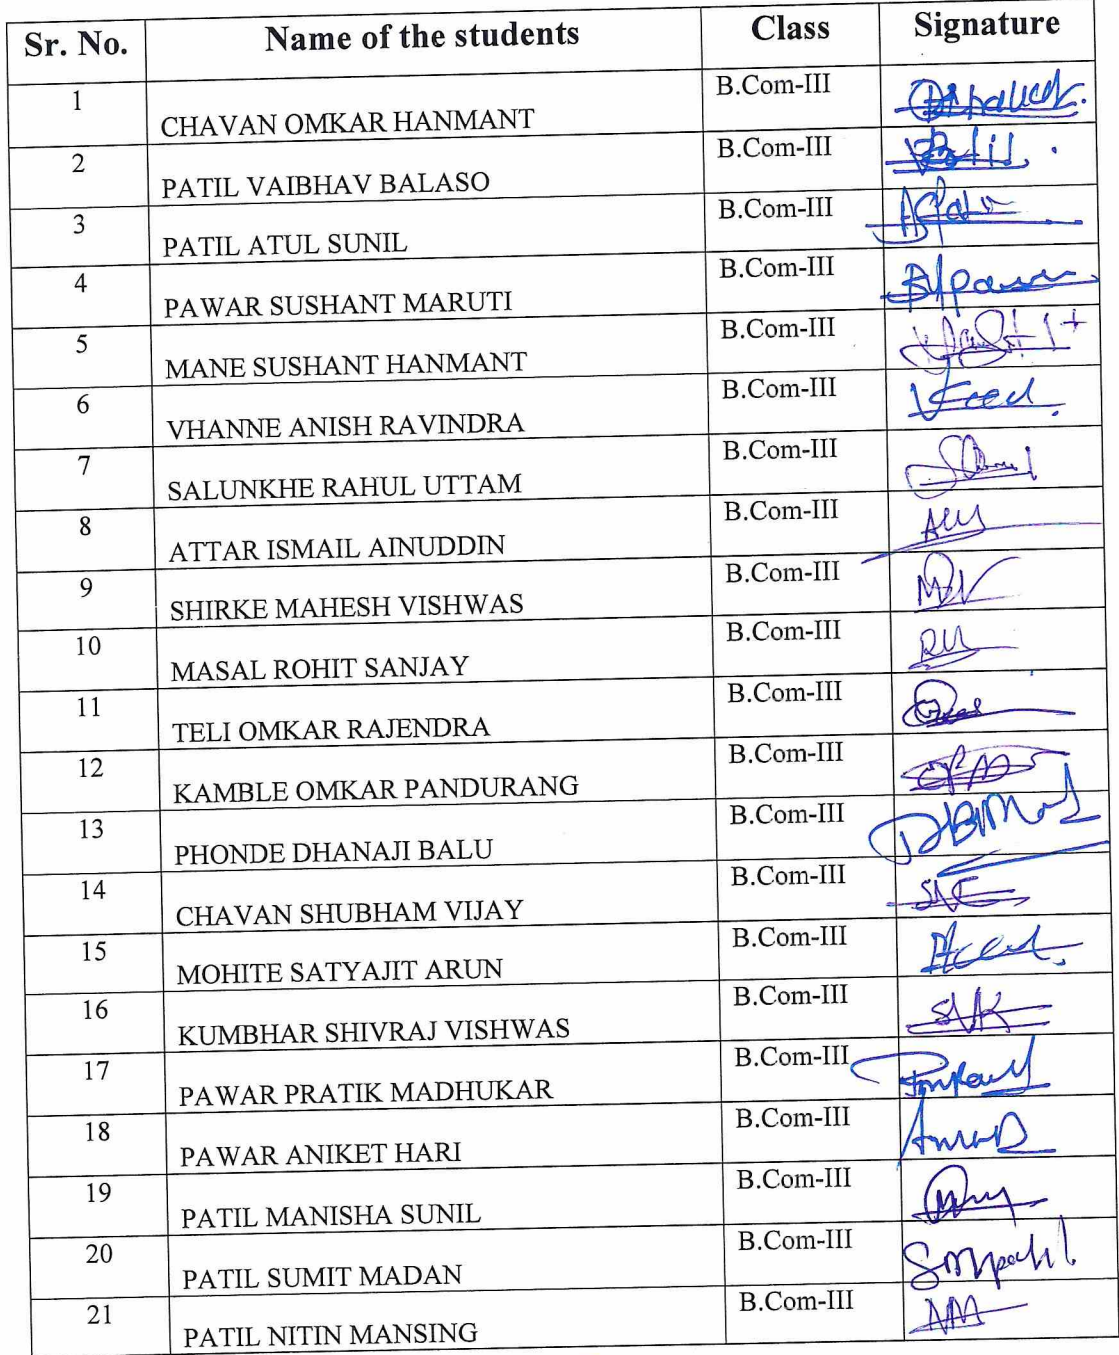 Sr. No. Name of the students Class Signature
1 CHAVAN OMKAR HANMANT B.Com-III
2 PATIL VAIBHAV BALASO B.Com-III
3 PATIL ATUL SUNIL B.Com-III
4 PAWAR SUSHANT MARUTI B.Com-III
5 MANE SUSHANT HANMANT B.Com-III
6 VHANNE ANISH RAVINDRA B.Com-III
7 SALUNKHE RAHUL UTTAM B.Com-III
8 ATTAR ISMAIL AINUDDIN B.Com-III
9 SHIRKE MAHESH VISHWAS B.Com-III
10 MASAL ROHIT SANJAY B.Com-III
11 TELI OMKAR RAJENDRA B.Com-III
12 KAMBLE OMKAR PANDURANG B.Com-III
13 PHONDE DHANAJI BALU B.Com-III
14 CHAVAN SHUBHAM VIJAY B.Com-III
15 MOHITE SATYAJIT ARUN B.Com-III
16 KUMBHAR SHIVRAJ VISHWAS B.Com-III SVK
17 PAWAR PRATIK MADHUKAR B.Com-III
18 PAWAR ANIKET HARI B.Com-III
19 PATIL MANISHA SUNIL B.Com-III
20 PATIL SUMIT MADAN B.Com-III
21 PATIL NITIN MANSING B.Com-III